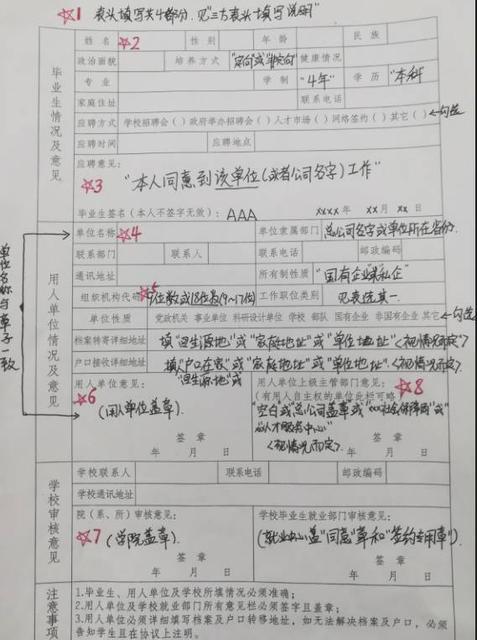 ☆1 表头填写共4部分,见"三方表头填写说明"
姓名 ☆2 性别 年龄 民族
政治面貌 培养方式 "定向"或"非定向" 健康情况
专业 学制 "4年" 学历 "本科"
家庭住址 联系电话
应聘方式 学校招聘会( )政府举办招聘会( )人才市场( )网络签约( )其它( ) 勾选
应聘时间 应聘地点
应聘意见:
☆3 "本人同意到该单位(或者公司名字)工作"
毕业生签名(本人不签字无效): AAA xxxx年 xx月 xx日
毕业生情况及意见
单位名称 ☆4 单位隶属部门 总公司名字或单位所在省份
联系部门 联系人 联系电话 邮政编码
通讯地址 所有制性质 "国有企业"或"私企"
组织机构代码 ☆5 9位数或18位的(9~17位) 工作职位类别 见表选其一
单位性质 党政机关 事业单位 科研设计单位 学校 部队 国有企业 非国有企业 其它 勾选
档案转寄详细地址 填"生源地"或"家庭地址"或"单位地址"<视情况而定>
户口接收详细地址 填"户口在家"或"家庭地址"或"单位地址"<视情况而定>
"生源地"或
用人单位意见:
☆6
(用人单位盖章)
签章
年 月 日
用人单位上级主管部门意见:
(有用人自主权的单位此栏可略) ☆8
"空白或"总公司盖章或"xxx社会保障局"或
"人才服务中心"
<视情况而定>
签章
年 月 日
用人单位情况及意见
单位名称与章子一致
学校联系人 联系电话 邮政编码
学校通讯地址
院(系、所)审核意见:
☆7 (学院盖章)
签章
年 月 日
学校毕业生就业部门审核意见:
(就业中心盖"同意"章和"签约专用章")
签章
年 月 日
学校审核意见
注意事项
1.毕业生、用人单位及学校所填情况必须准确;
2.用人单位及学校就业部门所有意见栏必须签字且盖章;
3.用人单位必须详细填写档案及户口转移地址,如无法解决档案及户口,必须
告知学生且在协议上注明。